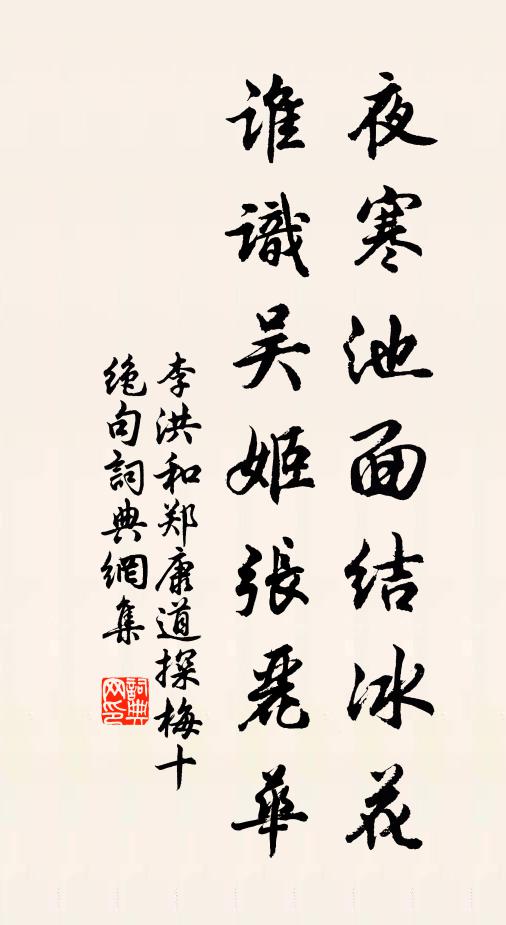 夜寒池面结冰花
谁識吴姬張麗華
李洪和郑康道探梅十
绝句詞典網集
詞典
网印